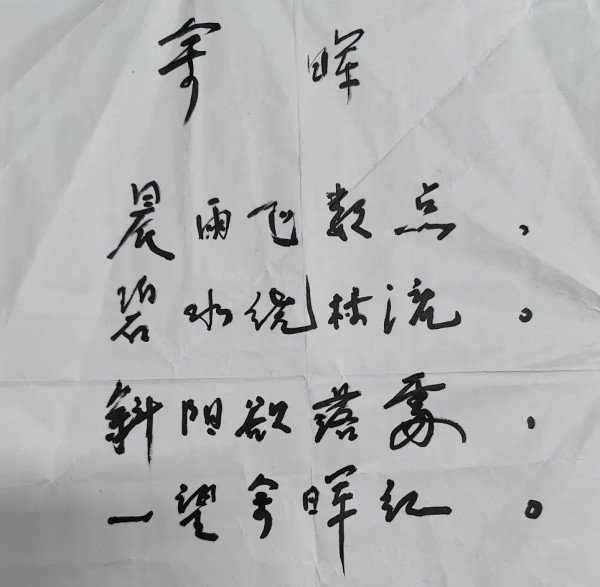 余晖
晨雨飞数点，
碧水绕村流。
斜阳欲落处，
一望余晖红。